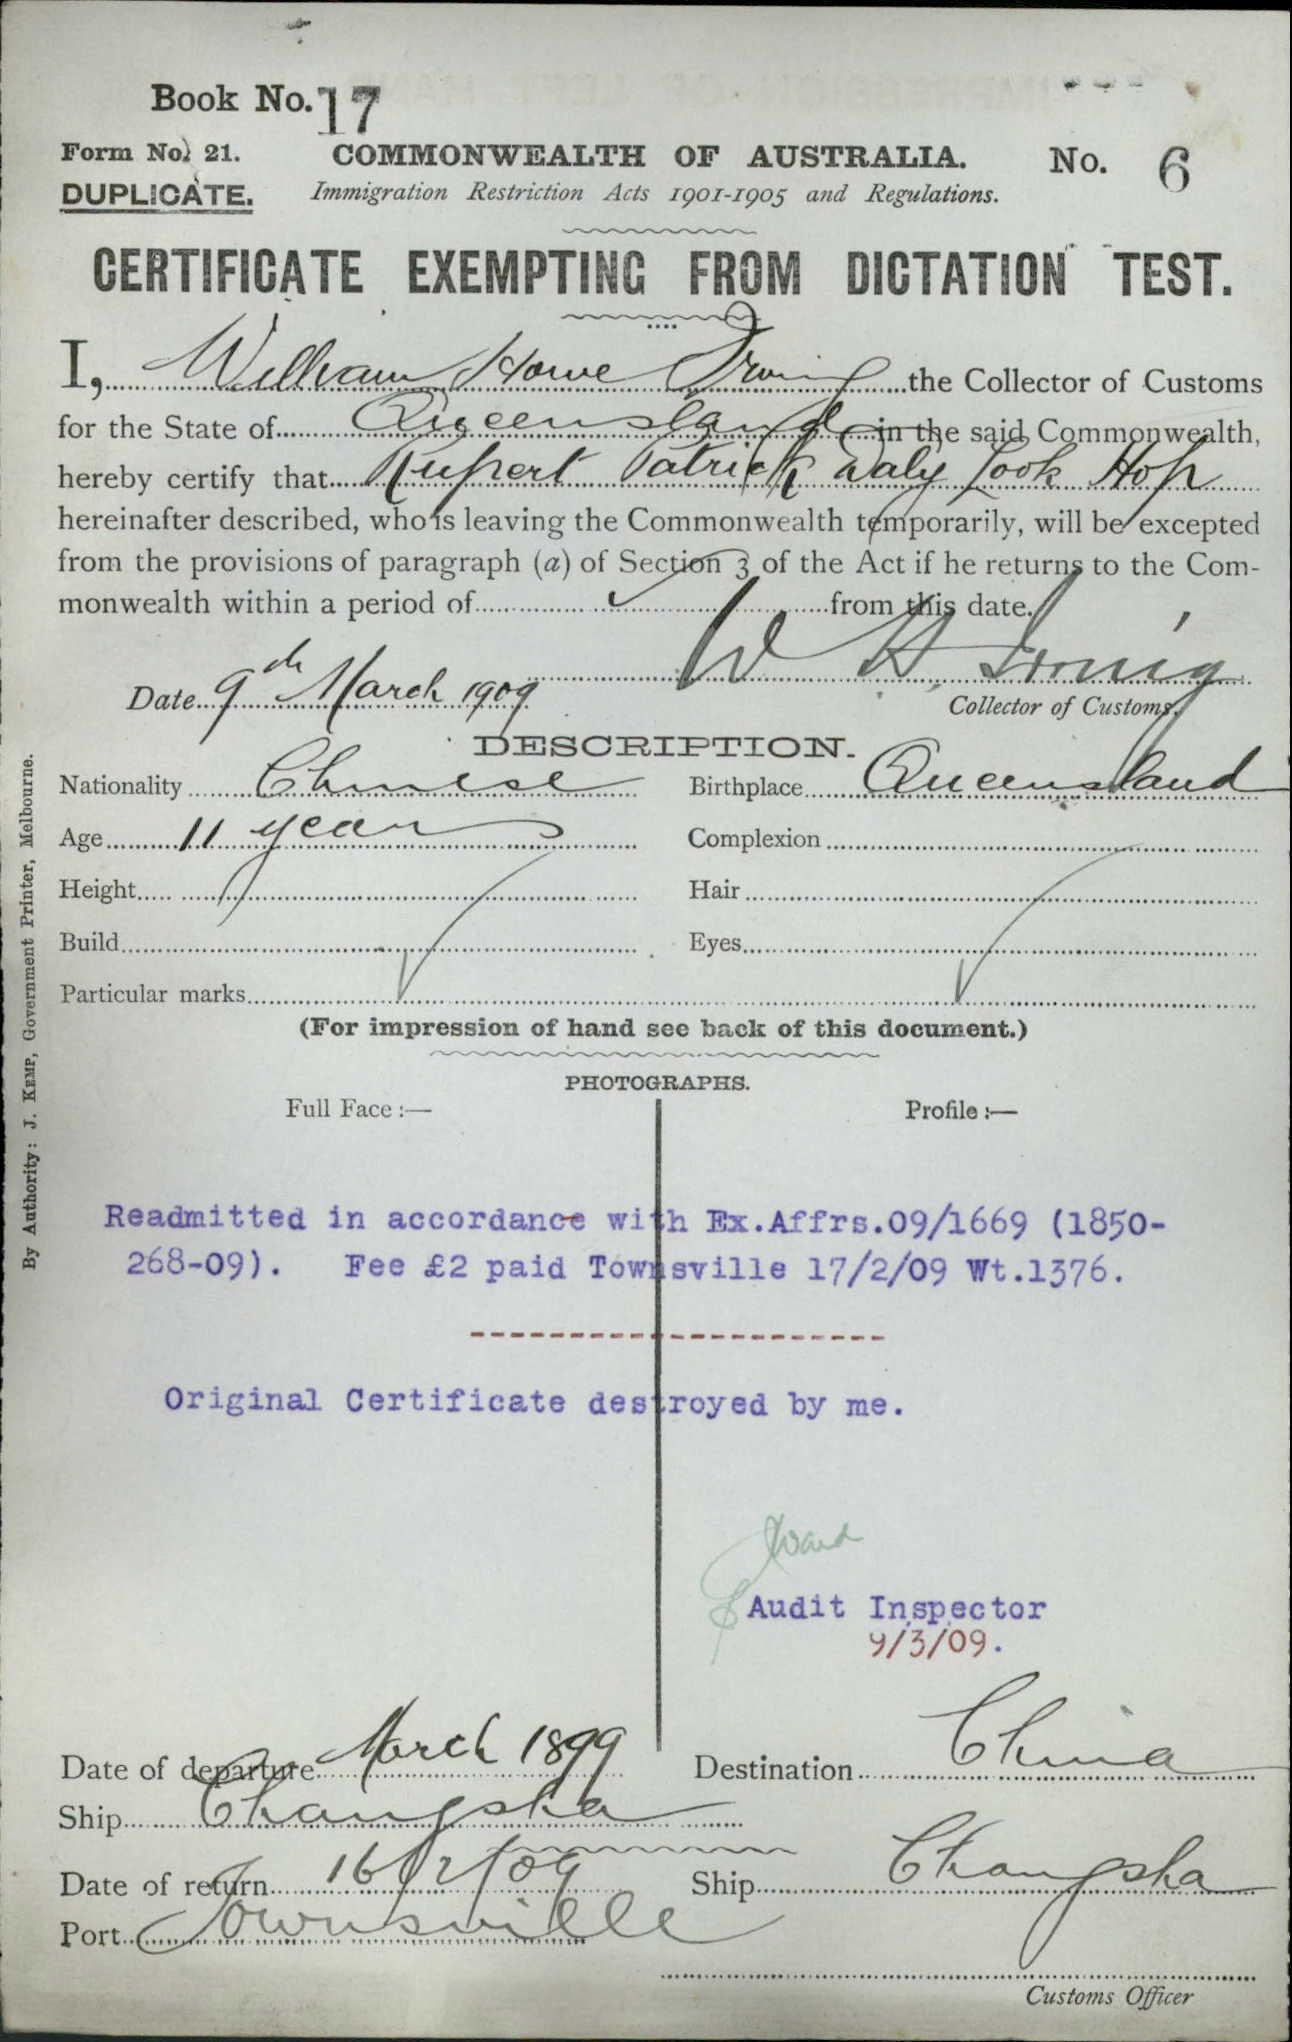 Book No. 17
Form No. 21. COMMONWEALTH OF AUSTRALIA. No. 6
DUPLICATE. Immigration Restriction Acts 1901-1905 and Regulations.
CERTIFICATE EXEMPTING FROM DICTATION TEST.
I, William Howe Irving the Collector of Customs
for the State of Queensland in the said Commonwealth,
hereby certify that Rupert Patrick Daly Look Hop
hereinafter described, who is leaving the Commonwealth temporarily, will be excepted
from the provisions of paragraph (a) of Section 3 of the Act if he returns to the Com-
monwealth within a period of from this date.
W H Irving
Date 9th March 1909
Collector of Customs.
DESCRIPTION.
Nationality Chinese Birthplace Queensland
Age 11 years Complexion
Height Hair
Build Eyes
Particular marks
(For impression of hand see back of this document.)
PHOTOGRAPHS.
Full Face :— Profile :—
Readmitted in accordance with Ex.Affrs.09/1669 (1850-
268-09). Fee £2 paid Townsville 17/2/09 Wt.1376.
Original Certificate destroyed by me.
Audit Inspector
9/3/09.
Date of departure March 1899 Destination China
Ship Changsha
Date of return 16/2/09 Ship Changsha
Port Townsville
Customs Officer
By Authority: J. KEMP, Government Printer, Melbourne.